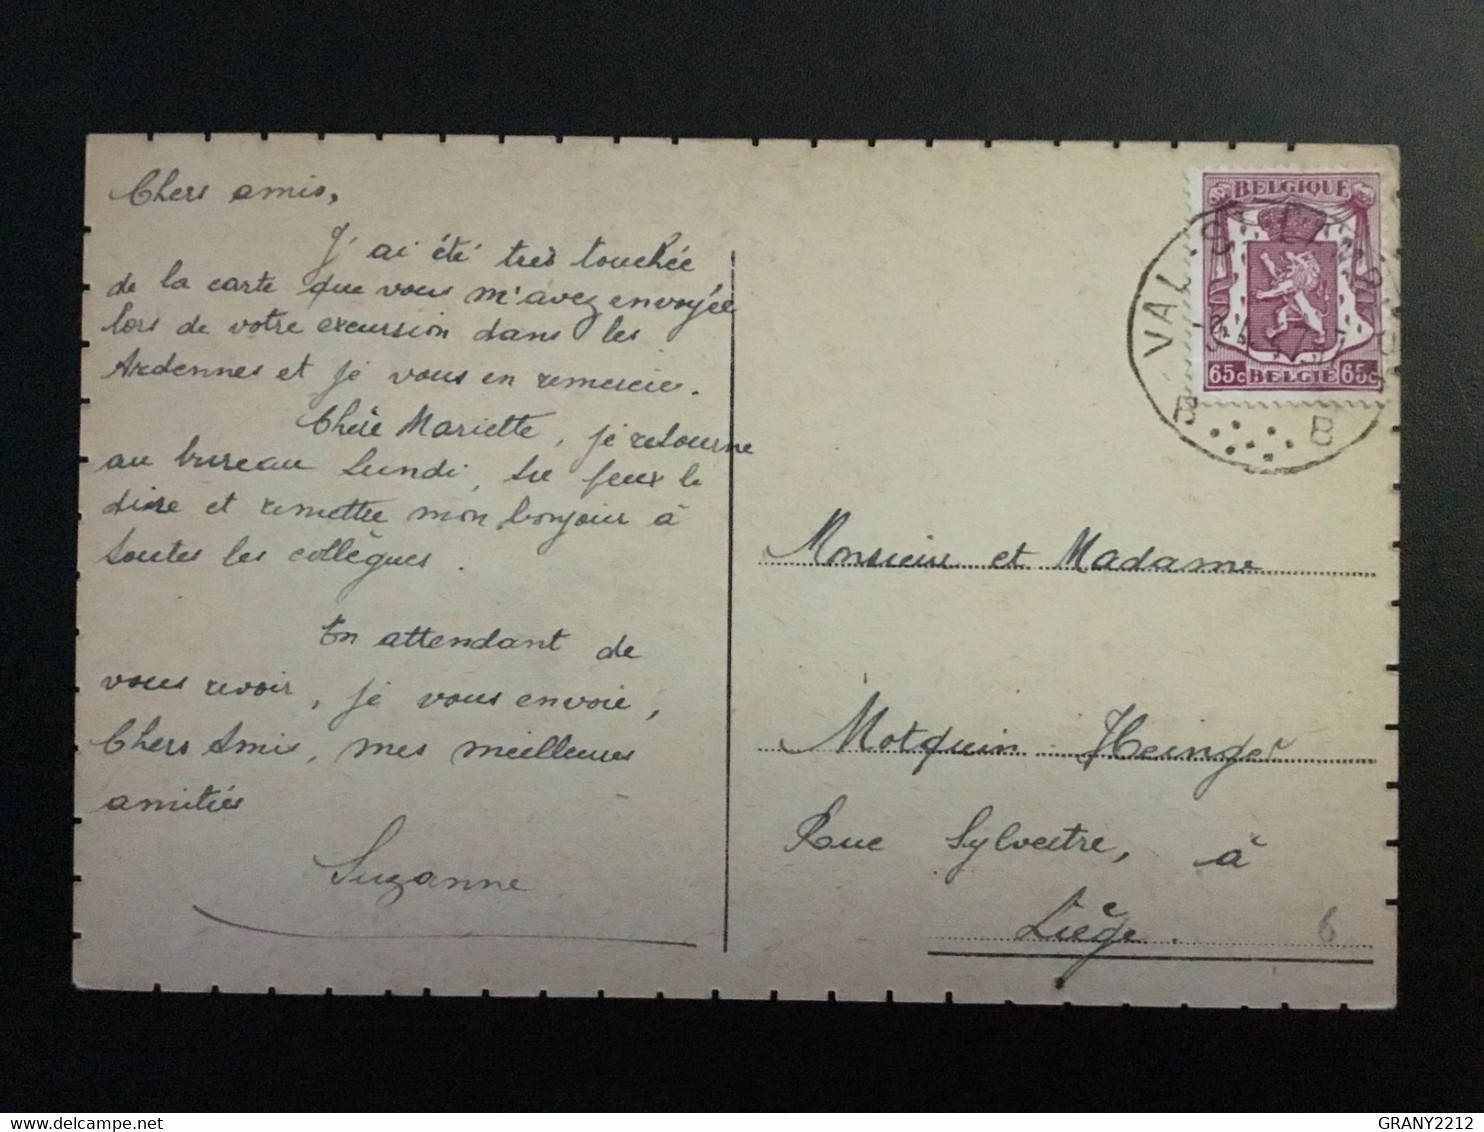 Chers amis,
J'ai été très touchée
de la carte que vous m'avez envoyée
lors de votre excursion dans les
Ardennes et je vous en remercie.
Chère Mariette, je retourne
au bureau Lundi, tu peux le
dire et remettre mon bonjour à
toutes les collègues.
En attendant de
vous revoir, je vous envoie,
Chers Amis, mes meilleures
amitiés
Suzanne
BELGIQUE
65c BELGIE 65c
VAL-S
B B
Monsieur et Madame
Motquin-Heinger
Rue Sylvestre, à
Liège.
6
delcampe.net
GRANY2212